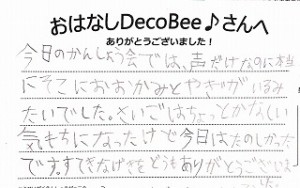 おはなしDecoBee♪さんへ
ありがとうございました!
今日のかんしょう会では、声だけなのに本当
にそこにおおかみとやぎがいるみ
たいでした。さいごはちょっとかなしい
気もちになったけど今日はたのしかった
です。すてきなげきをどうもありがとうございま
した。